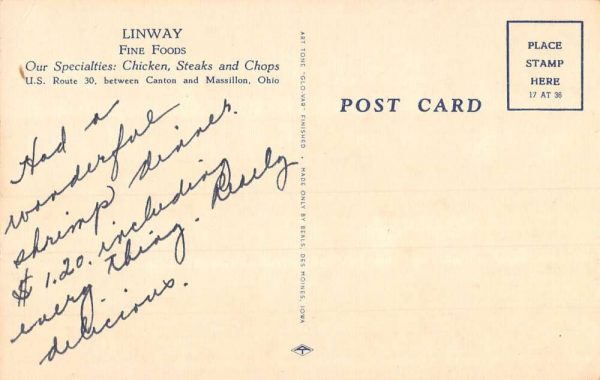 LINWAY
FINE FOODS
Our Specialties: Chicken, Steaks and Chops
U.S. Route 30, between Canton and Massillon, Ohio
Had a
wonderful
shrimp dinner.
$1.20. including
every thing. Really
delicious.
ART TONE "GLO-VAR" FINISHED • MADE ONLY BY BEALS, DES MOINES, IOWA
POST CARD
PLACE
STAMP
HERE
17 AT 36